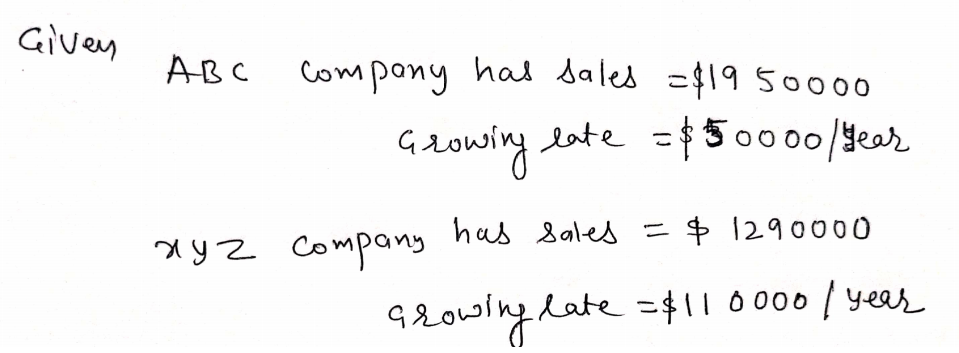 Given
ABC Company has sales = $1950000
Growing rate = $50000/year
xyz Company has sales = $ 1290000
Growing rate = $110000/year